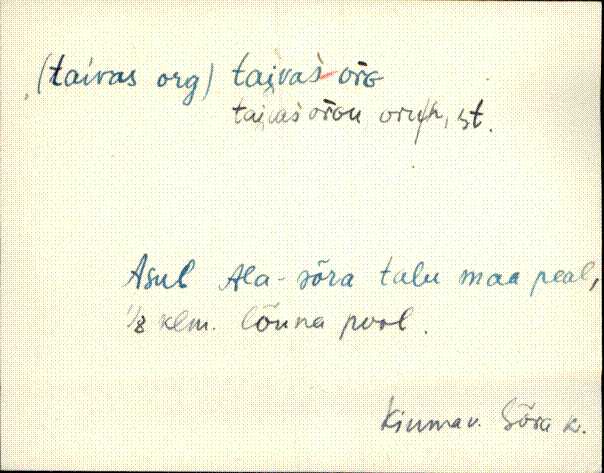 (taivas org) taivas org
taivas orgu
Asub Ala-Sõra talu maa peal,
1/8 klm. lõuna pool.
Kiuma v. Sõra k.